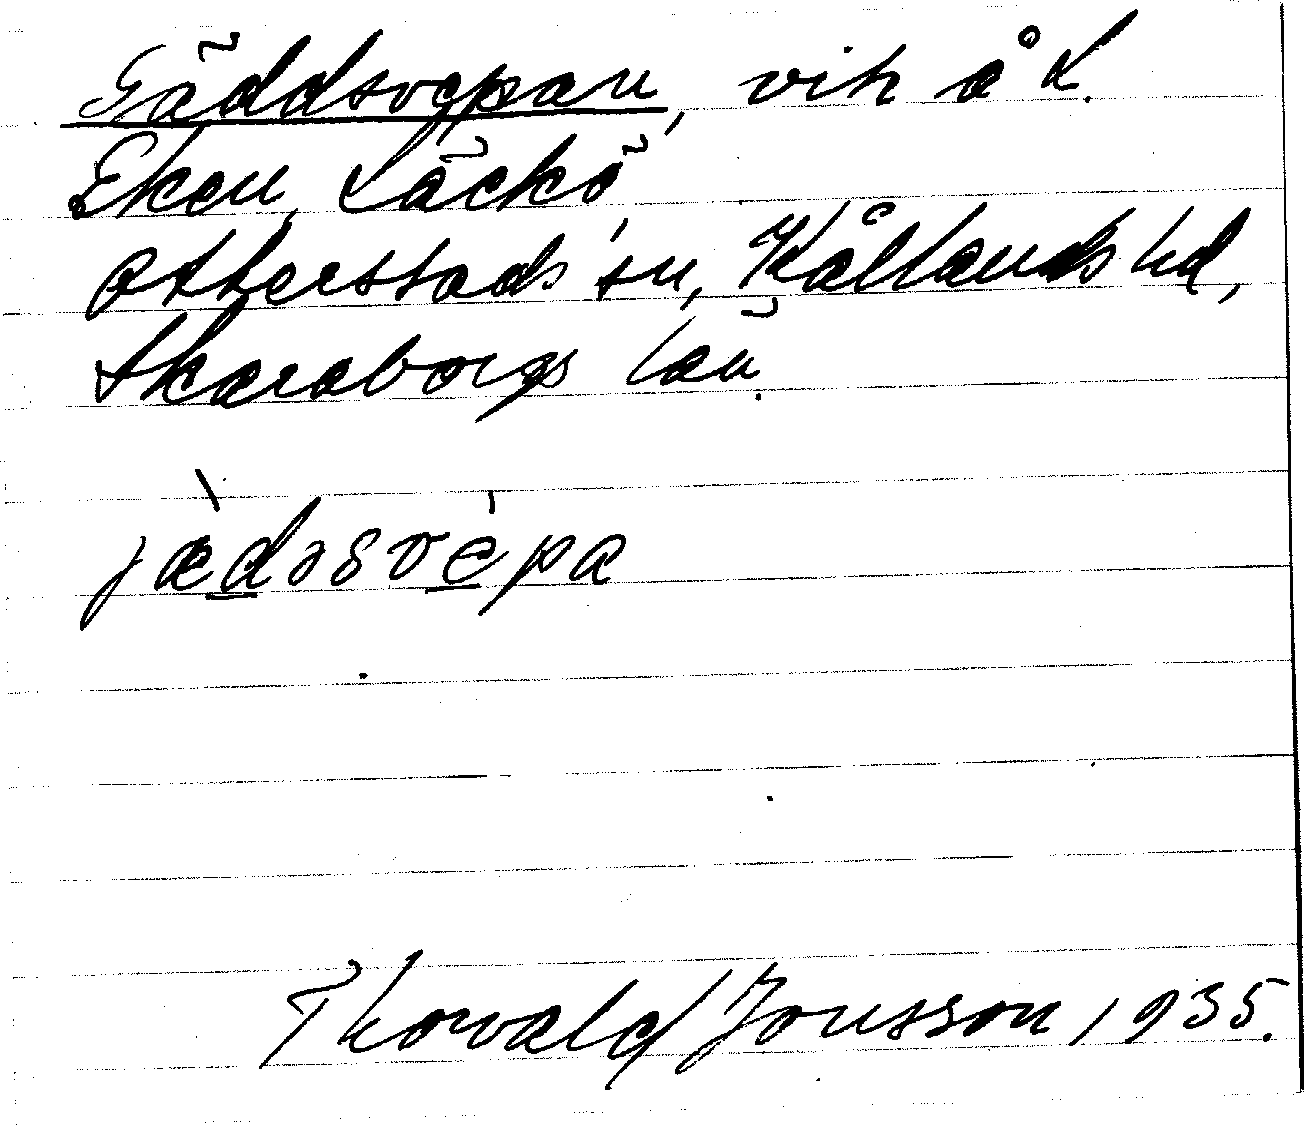 Gäddsvepan, vik å L.
Eken, Läckö,
Otterstads sn, Kållands hd,
Skaraborgs län.
jæ̀dəsvèpa
Thorvald Jonsson 1935.